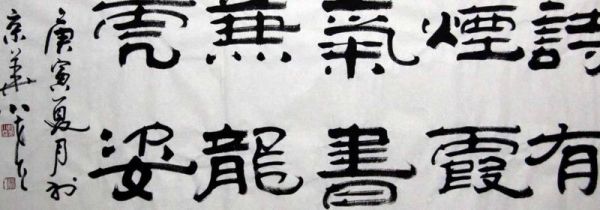 詩有
煙霞
氣書
兼龍
虎姿
庚寅夏月於
京華八